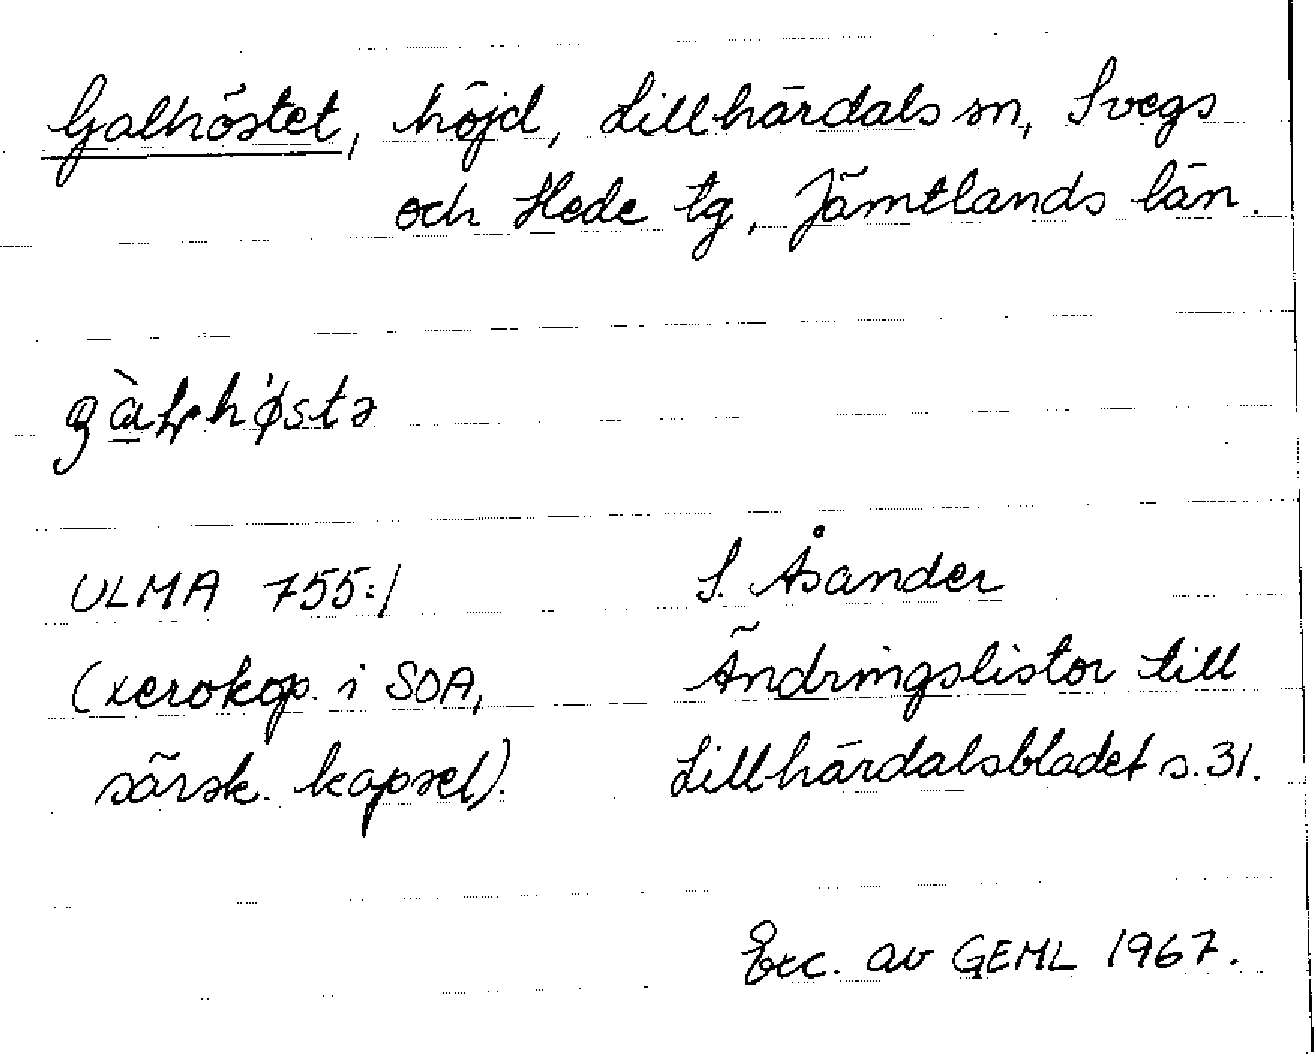 Galhöstet, höjd, Lillhärdals sn, Svegs
och Hede tg, Jämtlands län.
ULMA 755:1
S. Åsander
(xerokop. i SOA,
Ändringslistor till
särsk. kapsel).
Lillhärdalsbladet s. 31.
Exc. av GEML 1967.